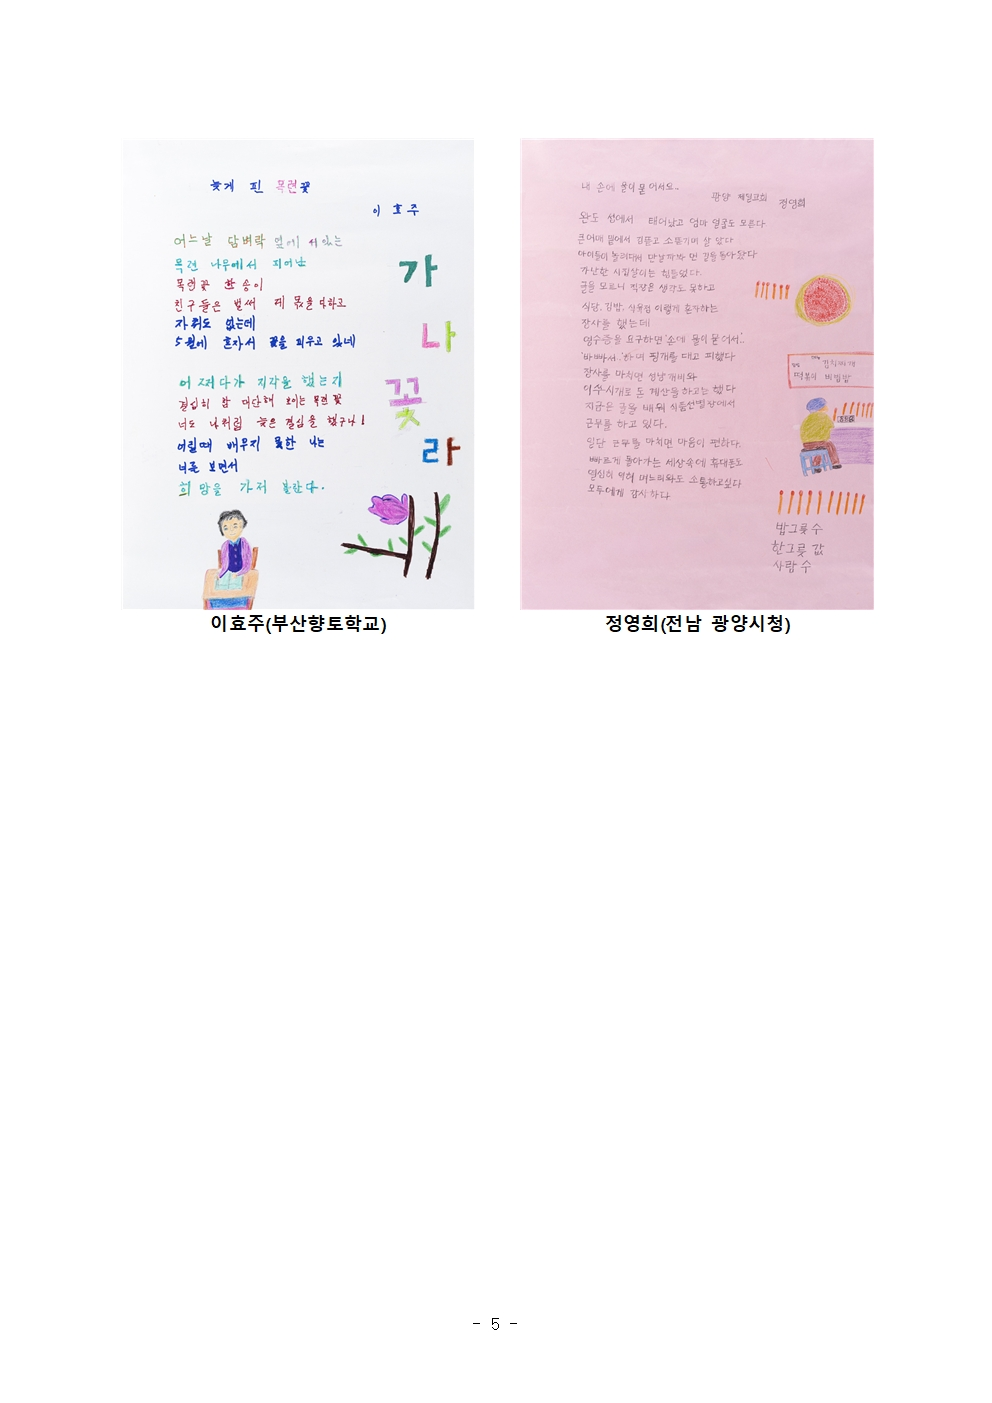 늦게 핀 목련꽃
이 효 주
어느날 담벼락 옆에 서있는
목련 나무에서 피어난
목련꽃 한 송이
친구들은 벌써 다하고
자취도 없는데
5월에 혼자서 꽃을 피우고 있네
어쩌다가 지각을 했는지
결심히 참 대단해 보이는 목련꽃
너도 나처럼 늦은 결심을 했구나!
어릴때 배우지 못한 나는
너를 보면서
희망을 가져 본다.
가
나
꽃
라
이효주(부산향토학교)
내 손에 물이 묻어서요..
광양 정영희
완도 섬에서 태어났고 엄마 얼굴도 모른다
큰어매 밑에서 김뜯고 소뜯기며 살았다
아이들이 놀리다봐 만날까봐 먼 길을 돌아왔다
가난한 시집살이는 힘들었다.
글을 모르니 직장은 생각도 못하고
식당, 김밥, 식육점 이렇게 혼자하는
장사를 했는데
영수증을 요구하면 '손에 물이 묻어서..'
'바빠서..' 하며 핑계를 대고 피했다
장사를 마치면 성냥개비와
이쑤시개로 돈 계산을 하고는 했다
지금은 글을 배워 식품선별장에서
근무를 하고 있다.
일단 근무를 마치면 마음이 편하다.
빠르게 돌아가는 세상속에 휴대폰도
열심히 익혀 며느리와도 소통하고싶다
모두에게 감사하다
김치찌개
떡볶이 비빔밥
밥그릇 수
한그릇 값
사람 수
정영희(전남 광양시청)
- 5 -